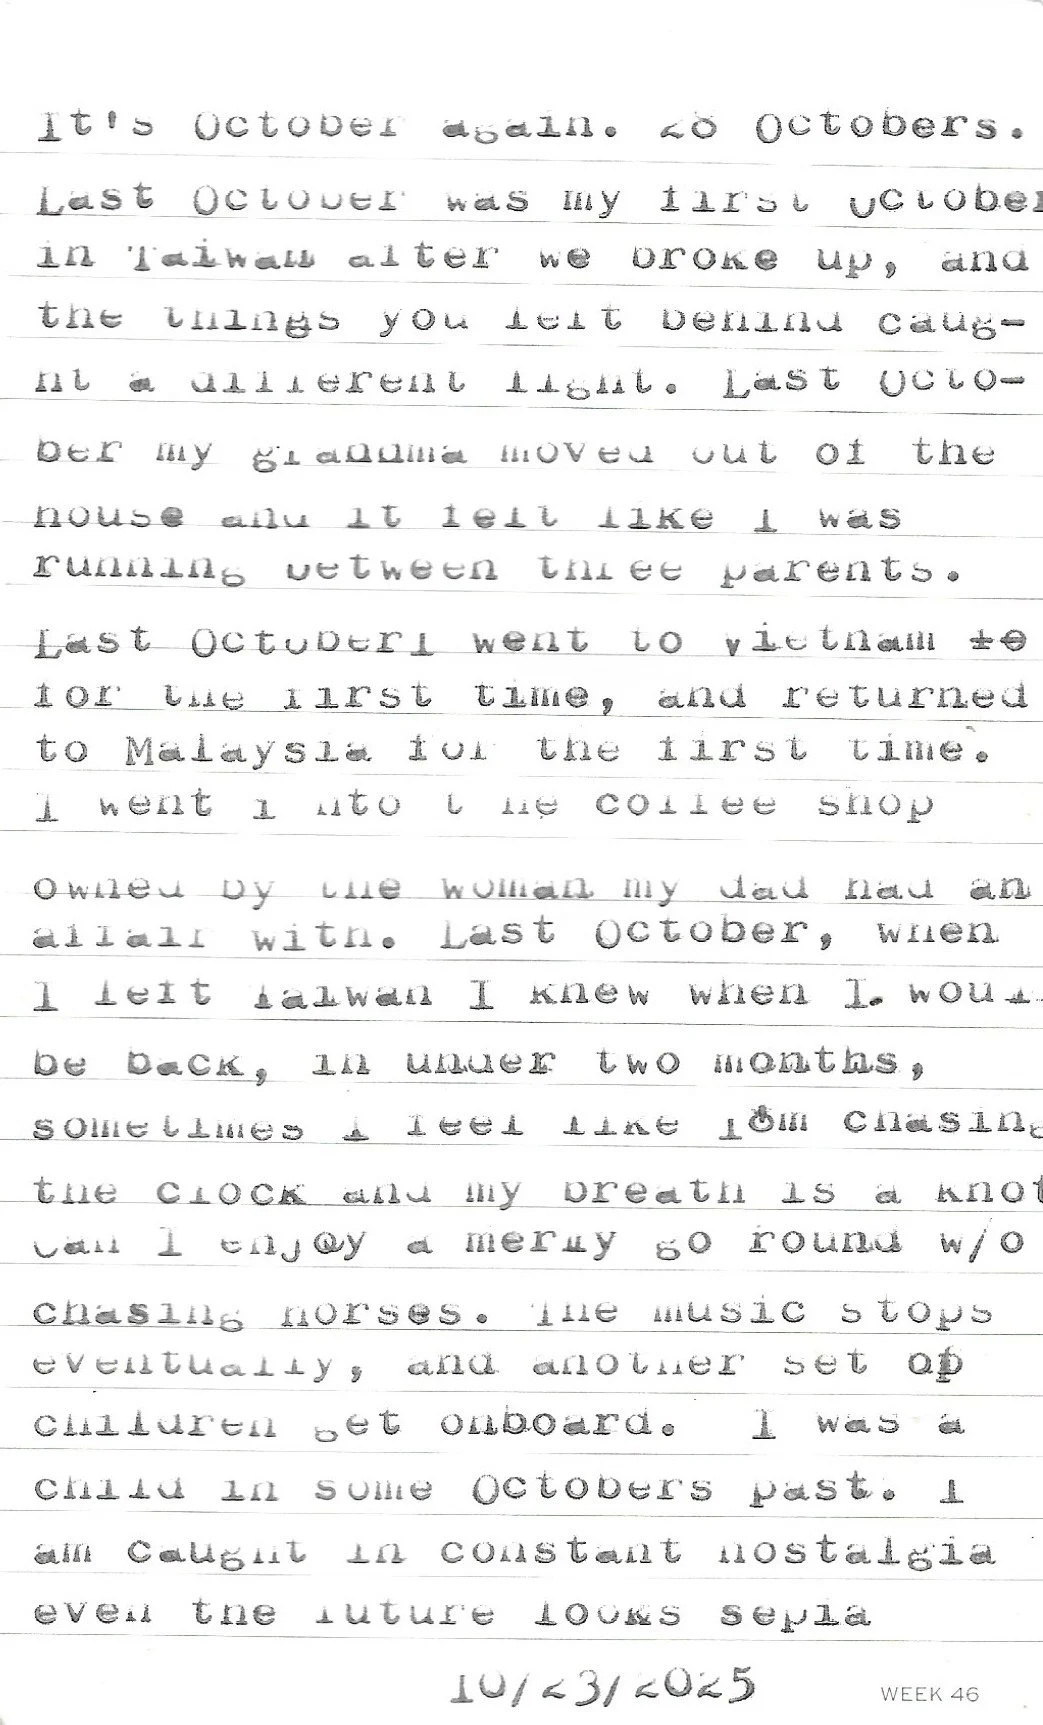 It's October again. 28 Octobers.
Last October was my first October
in Taiwan after we broke up, and
the things you left behind caug-
ht a different light. Last Octo-
ber my grandma moved out of the
house and it felt like I was
running between three parents.
Last OctoberI went to Vietnam to
for the first time, and returned
to Malaysia for the first time.
I went i nto t he coffee shop
owned by the woman my dad had an
affair with. Last October, when
I left Taiwan I knew when I. woul
be back, in under two months,
sometimes I feel like I'm chasing
the clock and my breath is a knot
Can I enjoy a merry go round w/o
chasing horses. The music stops
eventually, and another set of
children get onboard. I was a
child in some Octobers past. I
am caught in constant nostalgia
even the future looks sepia
10/23/2025
WEEK 46